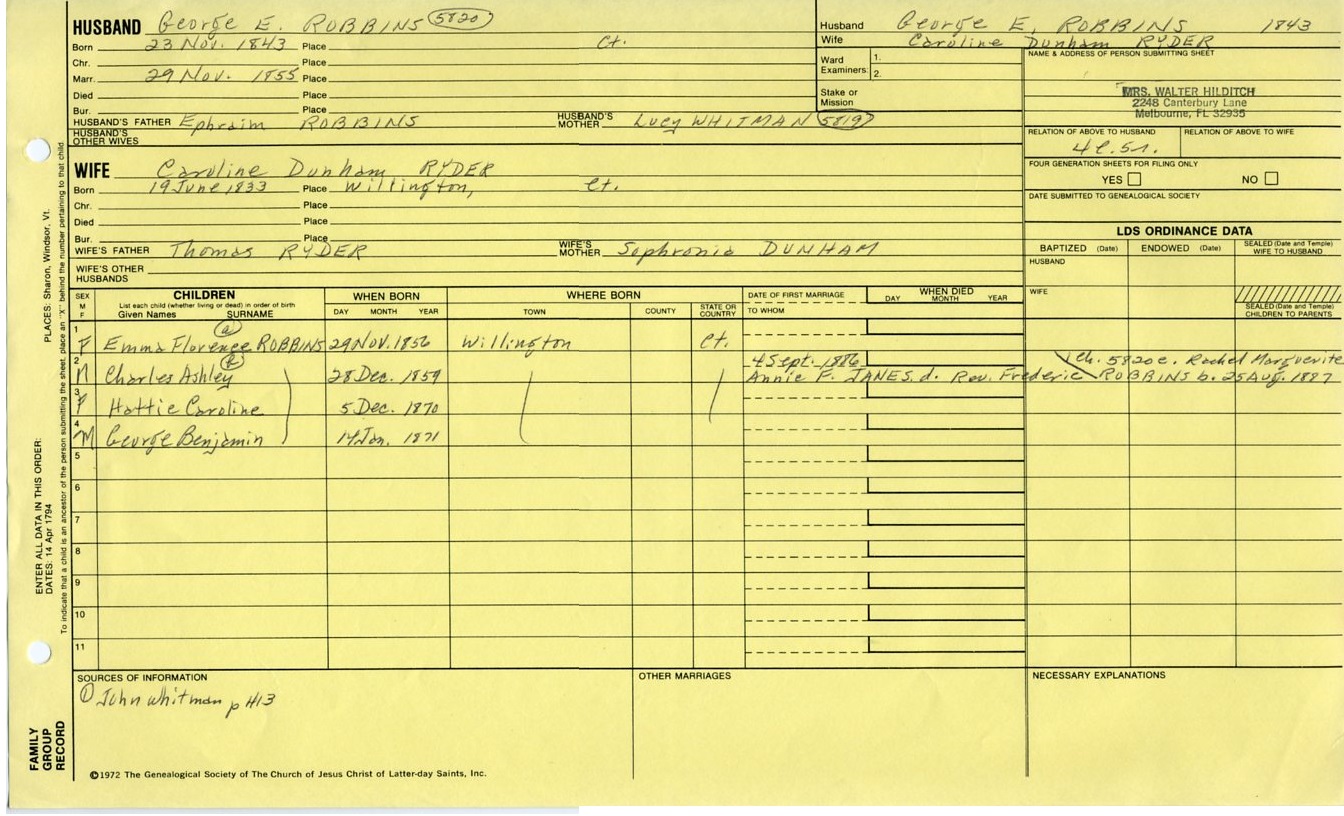 HUSBAND George E. ROBBINS 5820
Born 23 Nov. 1843 Place Ct.
Chr. Place
Marr. 29 Nov. 1855 Place
Died Place
Bur. Place
HUSBAND'S FATHER Ephraim ROBBINS HUSBAND'S MOTHER Lucy WHITMAN 5819
HUSBAND'S OTHER WIVES
WIFE Caroline Dunham RYDER
Born 19 June 1833 Place Willington, Ct.
Chr. Place
Died Place
Bur. Place
WIFE'S FATHER Thomas RYDER WIFE'S MOTHER Sophronia DUNHAM
WIFE'S OTHER HUSBANDS
Husband George E. ROBBINS 1843
Wife Caroline Dunham RYDER
Ward Examiners: 1.
2.
Stake or Mission
NAME & ADDRESS OF PERSON SUBMITTING SHEET
MRS. WALTER HILDITCH
2248 Canterbury Lane
Melbourne, FL 32935
RELATION OF ABOVE TO HUSBAND RELATION OF ABOVE TO WIFE
FOUR GENERATION SHEETS FOR FILING ONLY
YES NO
DATE SUBMITTED TO GENEALOGICAL SOCIETY
LDS ORDINANCE DATA
BAPTIZED (Date) ENDOWED (Date) SEALED (Date and Temple) WIFE TO HUSBAND
HUSBAND
WIFE
SEALED (Date and Temple) CHILDREN TO PARENTS
SEX M F
CHILDREN
List each child (whether living or dead) in order of birth
Given Names SURNAME
WHEN BORN
DAY MONTH YEAR
WHERE BORN
TOWN COUNTY STATE OR COUNTRY
DATE OF FIRST MARRIAGE
TO WHOM
WHEN DIED
DAY MONTH YEAR
1 F Emma Florence ROBBINS (a) 29 Nov. 1856 Willington Ct.
2 M Charles Ashley (b) 28 Dec. 1859 4 Sept. 1886 1 ch. 5820e. Rachel Marguerite
Annie F. JANES, d. Rev. Frederic ROBBINS b. 25 Aug. 1887
3 F Hattie Caroline 5 Dec. 1870
4 M George Benjamin 14 Jan. 1871
5
6
7
8
9
10
11
SOURCES OF INFORMATION
① John Whitman p 413
OTHER MARRIAGES
NECESSARY EXPLANATIONS
©1972 The Genealogical Society of The Church of Jesus Christ of Latter-day Saints, Inc.
FAMILY GROUP RECORD
ENTER ALL DATA IN THIS ORDER:
DATES: 14 Apr 1794
PLACES: Sharon, Windsor, Vt.
To indicate that a child is an ancestor of the person submitting the sheet, place an "X" behind the number pertaining to that child.